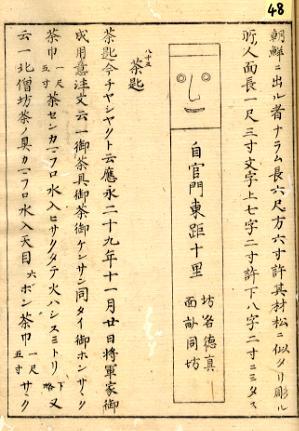 48
朝鮮ニ出ル者ナラム長六尺方六寸許其材松ニ似タリ彫ル
所人面長一尺三寸文字上七字二寸許下八字二寸ニミタス
自官門東距十里
坊名德真
面猷同坊
八十五
茶匙
茶匙今チヤシヤクト云應永二十九年十一月廿日將軍家御
成用意注文云一御茶具御茶御ケンサン同タイ御ホンサヽク
茶巾一尺五寸茶センカ一フロ水入ヒサクタテ火ハシスミトリ下略又
云一北僧坊茶ノ具カ一フロ水入天目六ボン茶巾一尺五寸サヽク